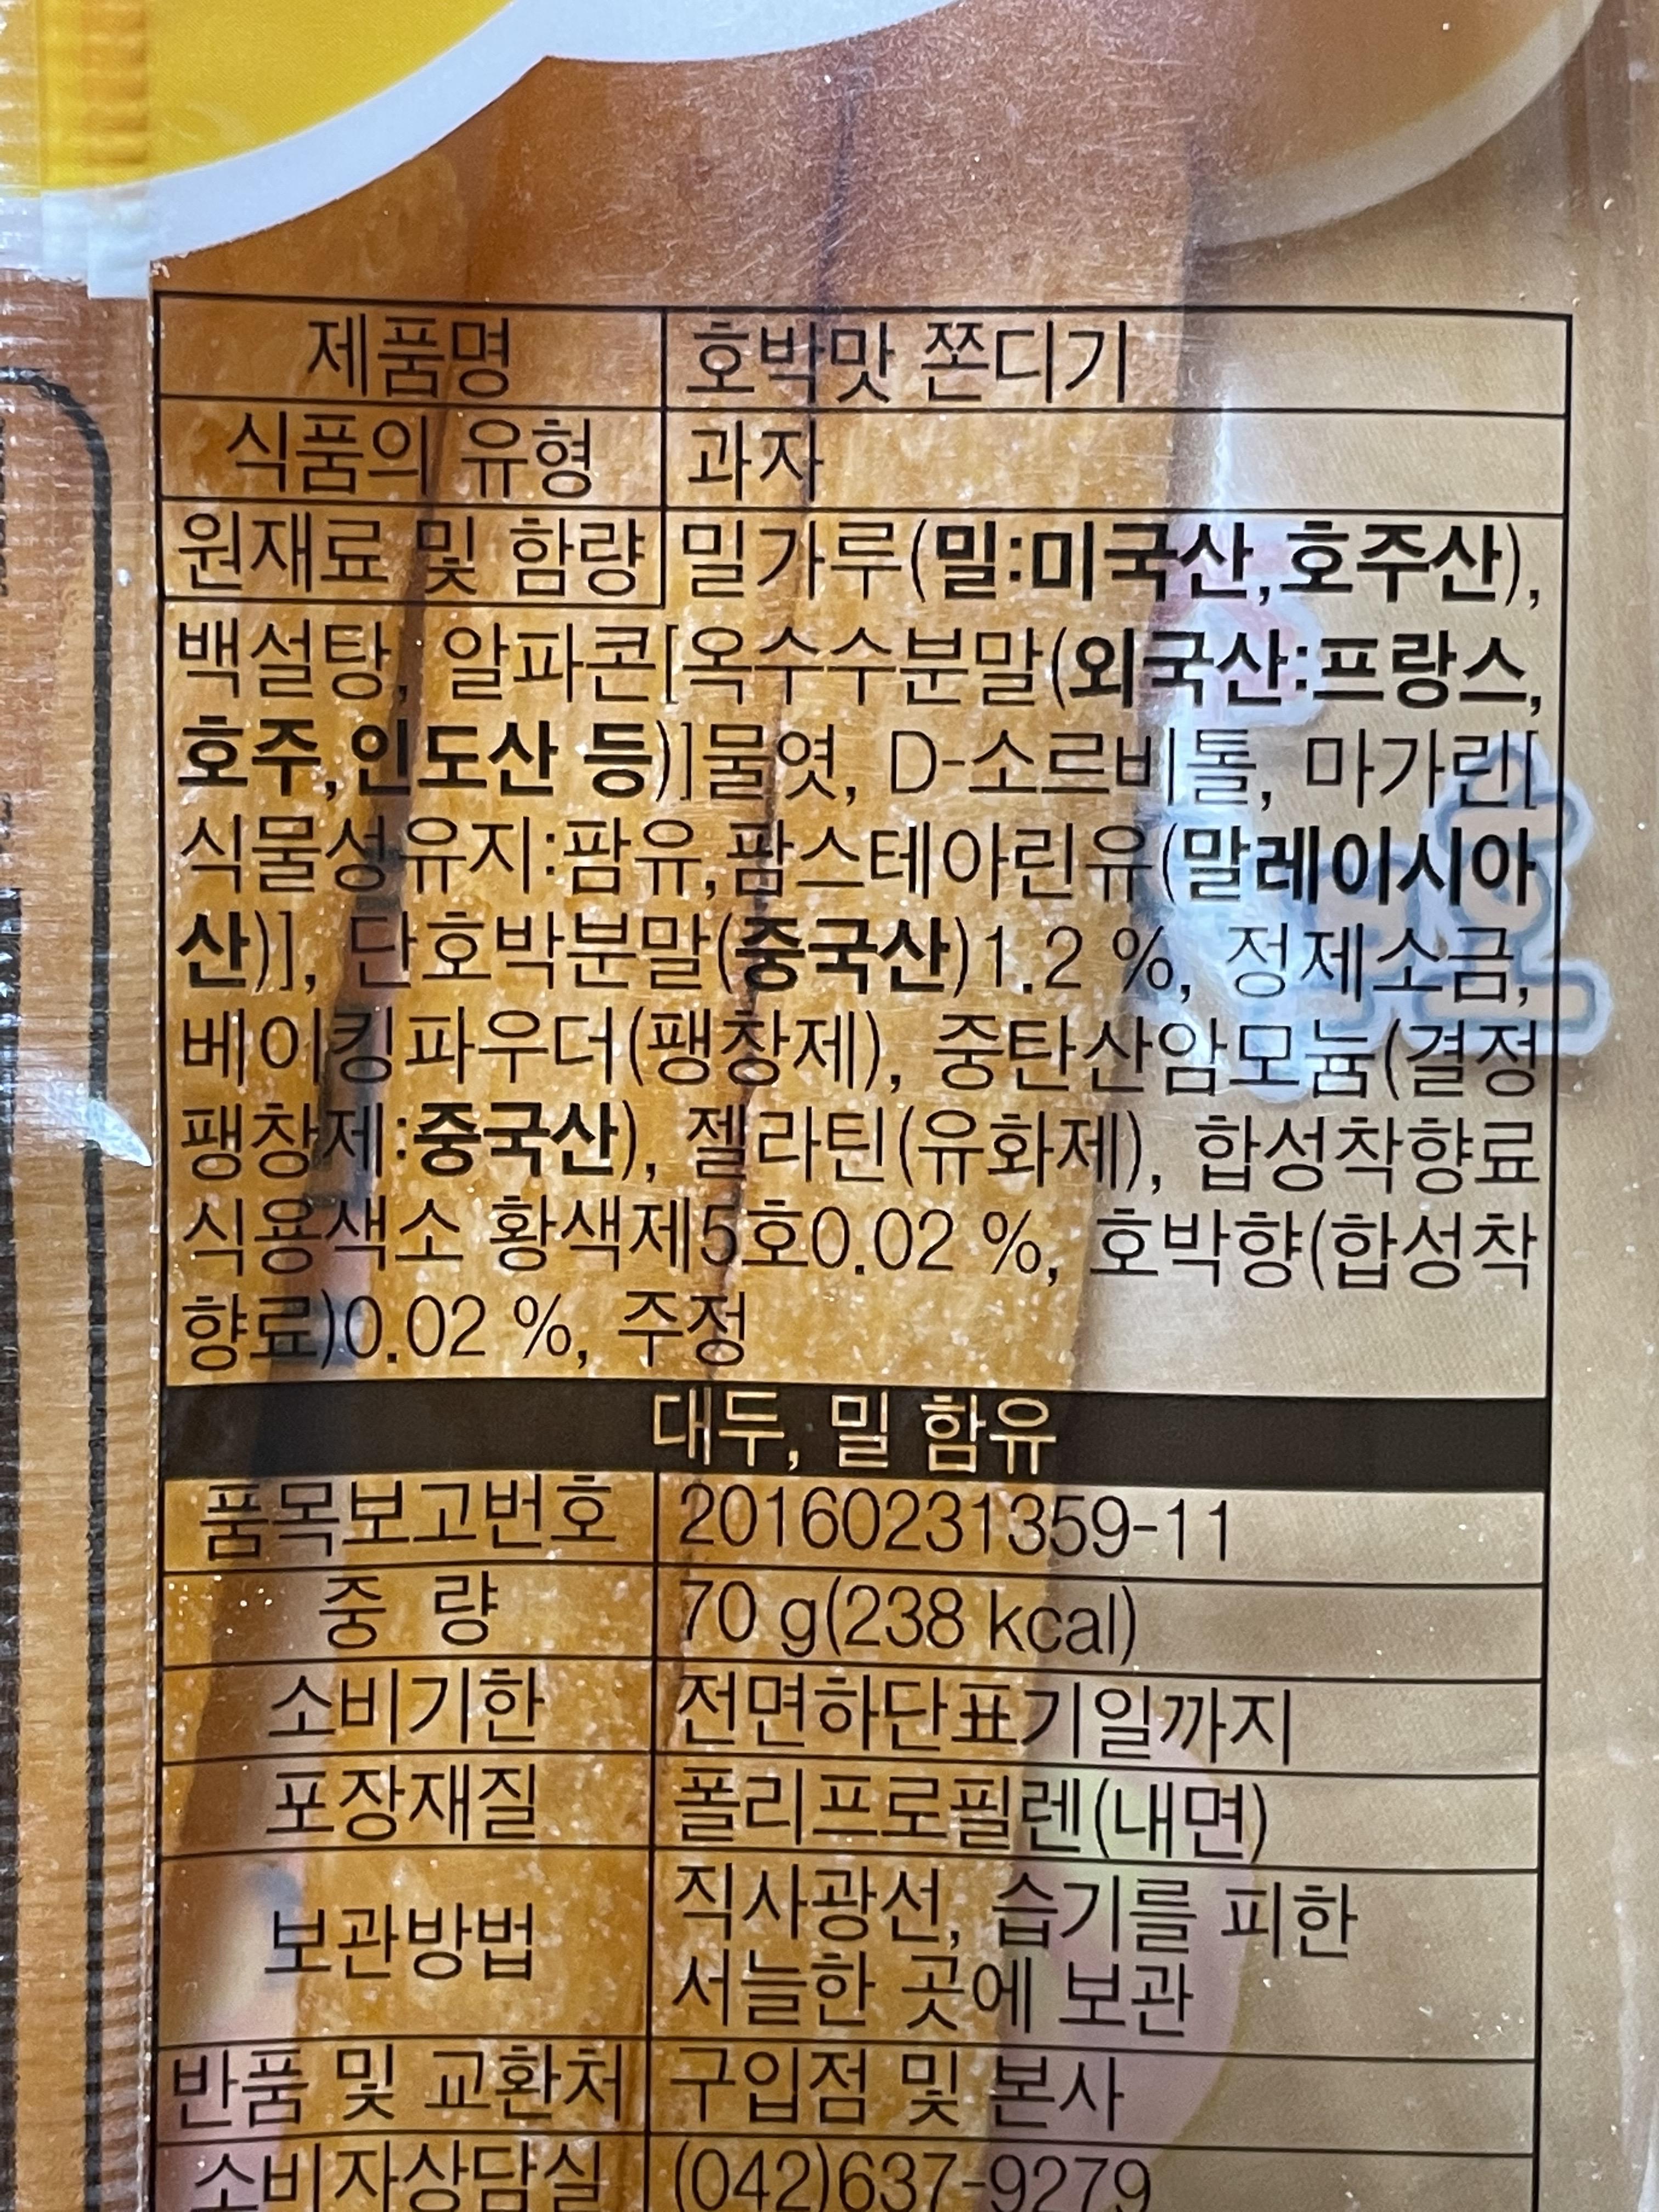 제품명 호박맛 쫀디기
식품의 유형 과자
원재료 및 함량 밀가루(밀:미국산,호주산),
백설탕, 알파콘[옥수수분말(외국산:프랑스,
호주,인도산 등)]물엿, D-소르비톨, 마가린[
식물성유지:팜유,팜스테아린유(말레이시아
산)], 단호박분말(중국산)1.2 %, 정제소금,
베이킹파우더(팽창제), 중탄산암모늄(결정
팽창제:중국산), 젤라틴(유화제), 합성착향료
식용색소 황색제5호0.02 %, 호박향(합성착
향료)0.02 %, 주정
대두, 밀 함유
품목보고번호 20160231359-11
중 량 70 g(238 kcal)
소비기한 전면하단표기일까지
포장재질 폴리프로필렌(내면)
보관방법 직사광선, 습기를 피한
서늘한 곳에 보관
반품 및 교환처 구입점 및 본사
소비자상담실 (042)637-9279